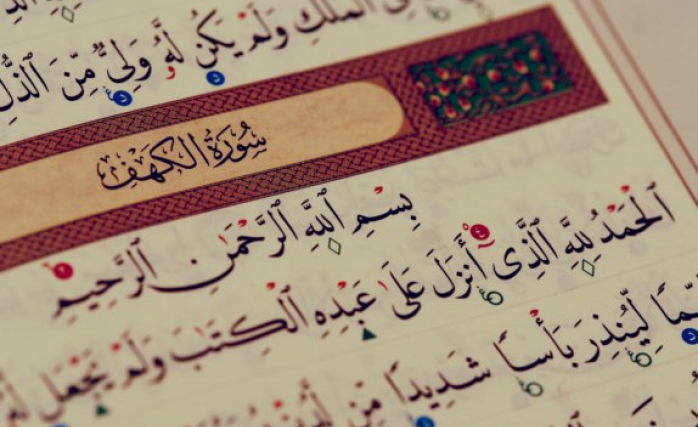 الْمُلْكِ وَلَمْ يَكُن لَّهُ وَلِيٌّ مِّنَ الذُّلِّ
سُورَةُ الْكَهْفِ
بِسْمِ اللَّهِ الرَّحْمَٰنِ الرَّحِيمِ
الْحَمْدُ لِلَّهِ الَّذِى أَنزَلَ عَلَىٰ عَبْدِهِ الْكِتَٰبَ وَلَمْ يَجْعَل لَهُ
لِّيُنذِرَ بَأْسًا شَدِيدًا مِّن